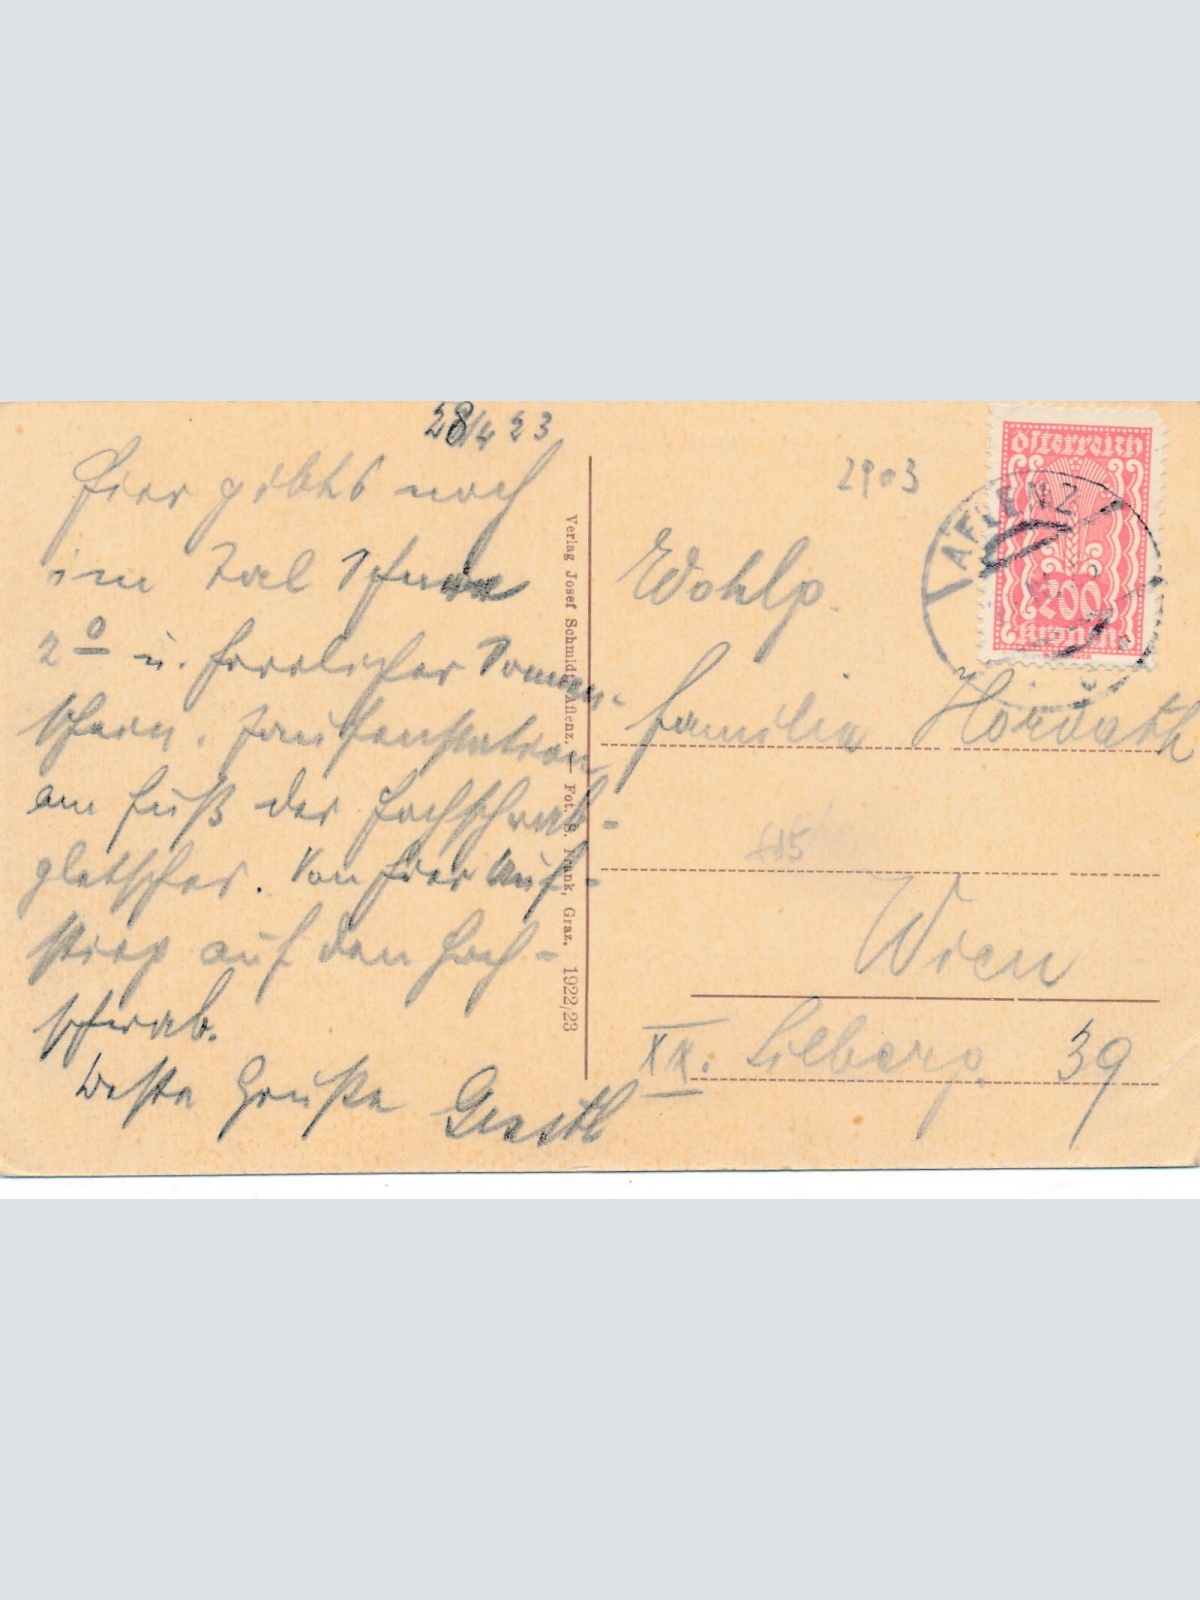 28/4 23
Hier gibts noch
im Tal Schnee
2º u. herrlicher Sonnen-
schein. Jausenstation
am Fuß der Hochschwab-
gletscher. Von hier Auf-
stieg auf den Hoch-
schwab.
Beste Grüße
Verlag Josef Schmidt, Aflenz. — Fot. S. Frank, Graz. 1922/23
2903
Österreich
200
Kronen
AFLENZ
Wohlg.
Familie Horvath
Wien
XX. 39